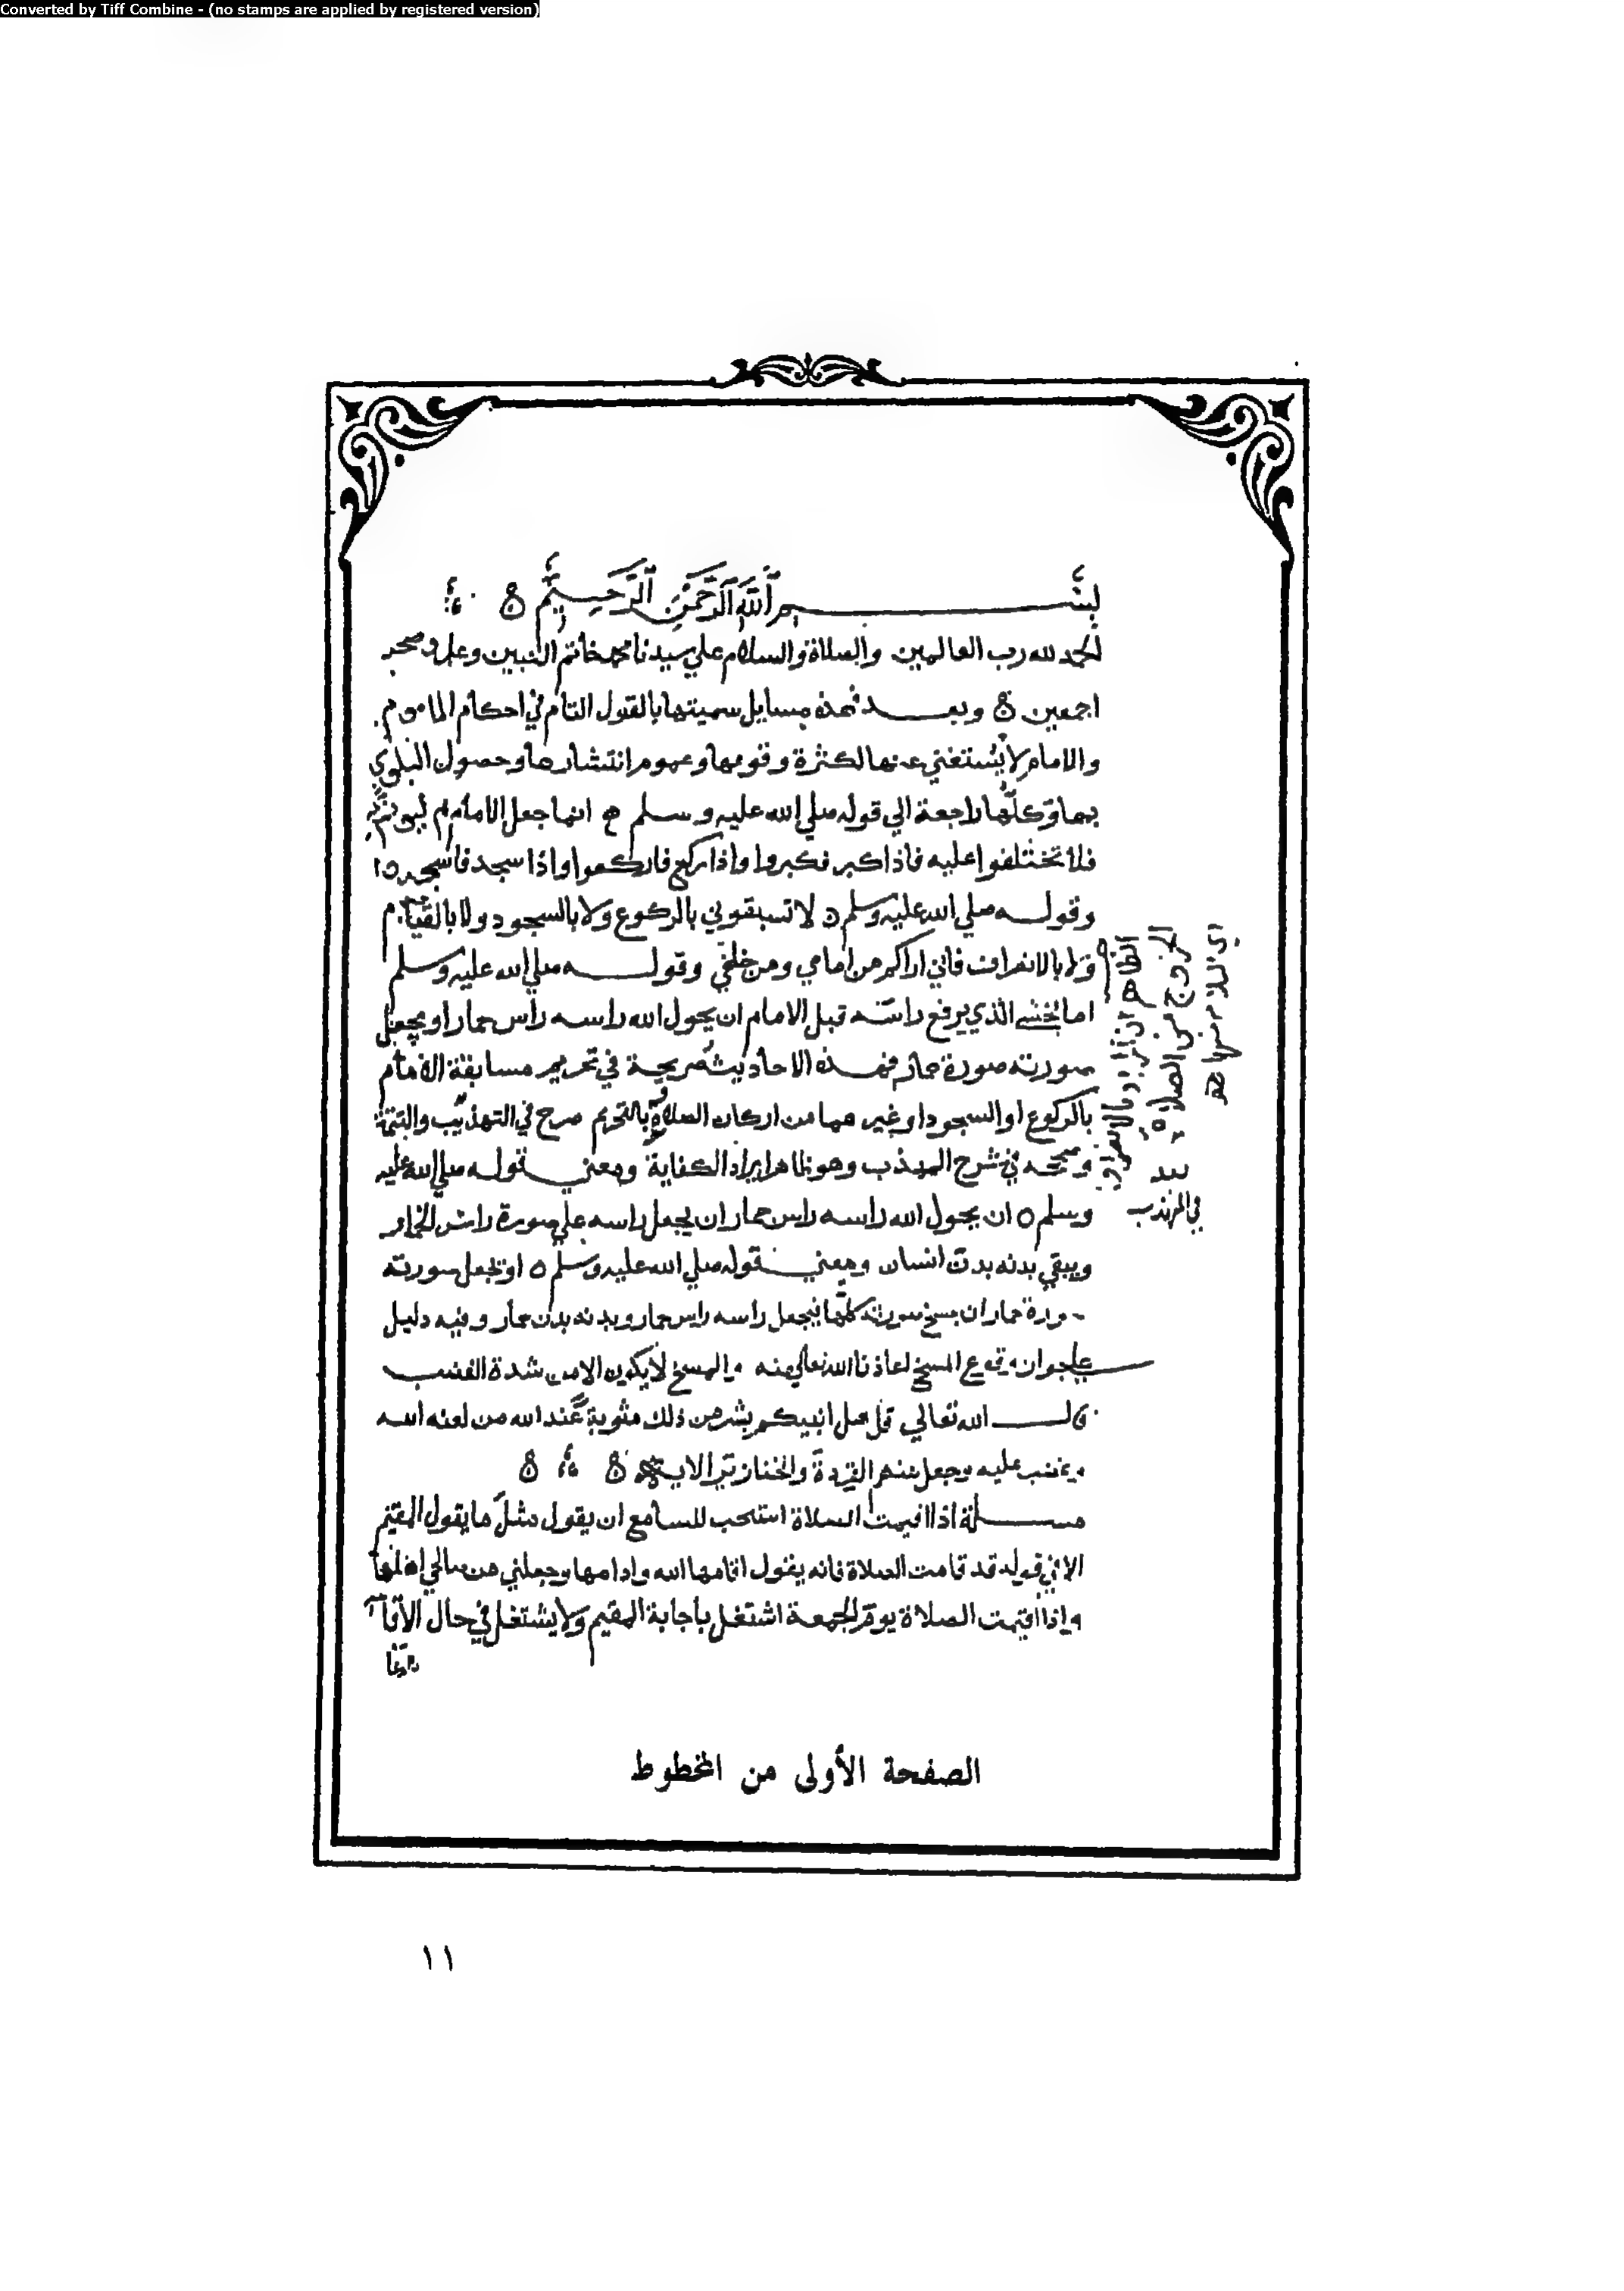 Converted by Tiff Combine - (no stamps are applied by registered version)
بِسْمِ ٱللَّهِ ٱلرَّحْمَٰنِ ٱلرَّحِيمِ
الحمد لله رب العالمين والصلاة والسلام علي سيدنا محمد خاتم النبيين وعلي وصحبه
اجمعين وبعد فهذه مسايل سميتها بالقول التام في احكام الماموم
والامام لا يستغني عنها لكثرة وقوعها وعموم انتشارها وحصول البلوي
بها وكلها راجعة الي قوله صلي الله عليه وسلم انما جعل الامام ليوتم به
فلا تختلفوا عليه فاذا كبر فكبروا واذا ركع فاركعوا واذا سجد فاسجدوا
وقوله صلي الله عليه وسلم لا تسبقوني بالركوع ولا بالسجود ولا بالقيام
ولا بالانصراف فاني اراكم من امامي ومن خلفي وقوله صلي الله عليه وسلم
اما يخشي الذي يرفع راسه قبل الامام ان يحول الله راسه راس حمار او يجعل
صورته صورة حمار فهذه الاحاديث صريحة في تحريم مسابقة الامام
بالركوع او السجود او غيرهما من اركان الصلاة وبالتحريم صرح في التهذيب والتتمة
وصححه في شرح المهذب وهو ظاهر ايراد الكفاية ومعني قوله صلي الله عليه
وسلم ان يحول الله راسه راس حمار ان يجعل راسه علي صورة راس الحمار
ويبقي بدنه بدن انسان ومعني قوله صلي الله عليه وسلم او يجعل صورته
صورة حمار ان يمسخ صورته كلها فيجعل راسه راس حمار وبدنه بدن حمار وفيه دليل
علي جواز وقوع المسخ اعاذنا الله تعالي منه والمسخ لا يكون الا من شدة الغضب
قال الله تعالي قل هل انبيكم بشر من ذلك مثوبة عند الله من لعنه الله
وغضب عليه وجعل منهم القردة والخنازير الاية
مسلة اذا اقيمت الصلاة استحب للسامع ان يقول مثل ما يقول المقيم
الا في قوله قد قامت الصلاة فانه يقول اقامها الله وادامها وجعلني من صالحي اهلها
واذا اقيمت الصلاة يوم الجمعة اشتغل باجابة المقيم ولا يشتغل في حال الاقامة
الظاهر ان المراد بالانصراف
الخروج من الصلاة
اي السلام منها اهـ
في المهذب
الصفحة الأولى من المخطوط
١١